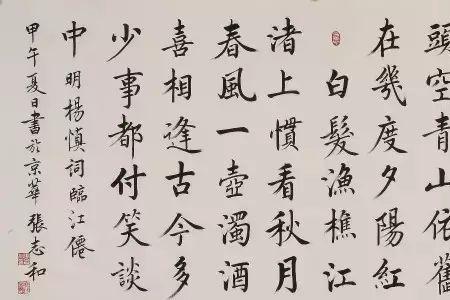 頭空青山依舊
在幾度夕陽紅
白髮漁樵江
渚上慣看秋月
春風一壺濁酒
喜相逢古今多
少事都付笑談
中 明楊慎詞臨江僊
甲午夏日書於京華張志和